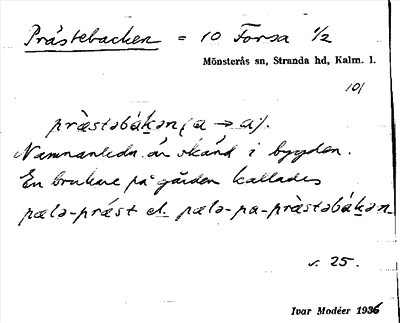 Prästebacken = 10 Forsa 1/2
Mönsterås sn, Stranda hd, Kalm. l.
101
prὰstəbákən (a → a).
Namnanledn. är okänd i bygden.
En brukare på gården kallades
pælə-prást el. pælə-pa-prὰstəbákən
s. 25.
Ivar Modéer 1936